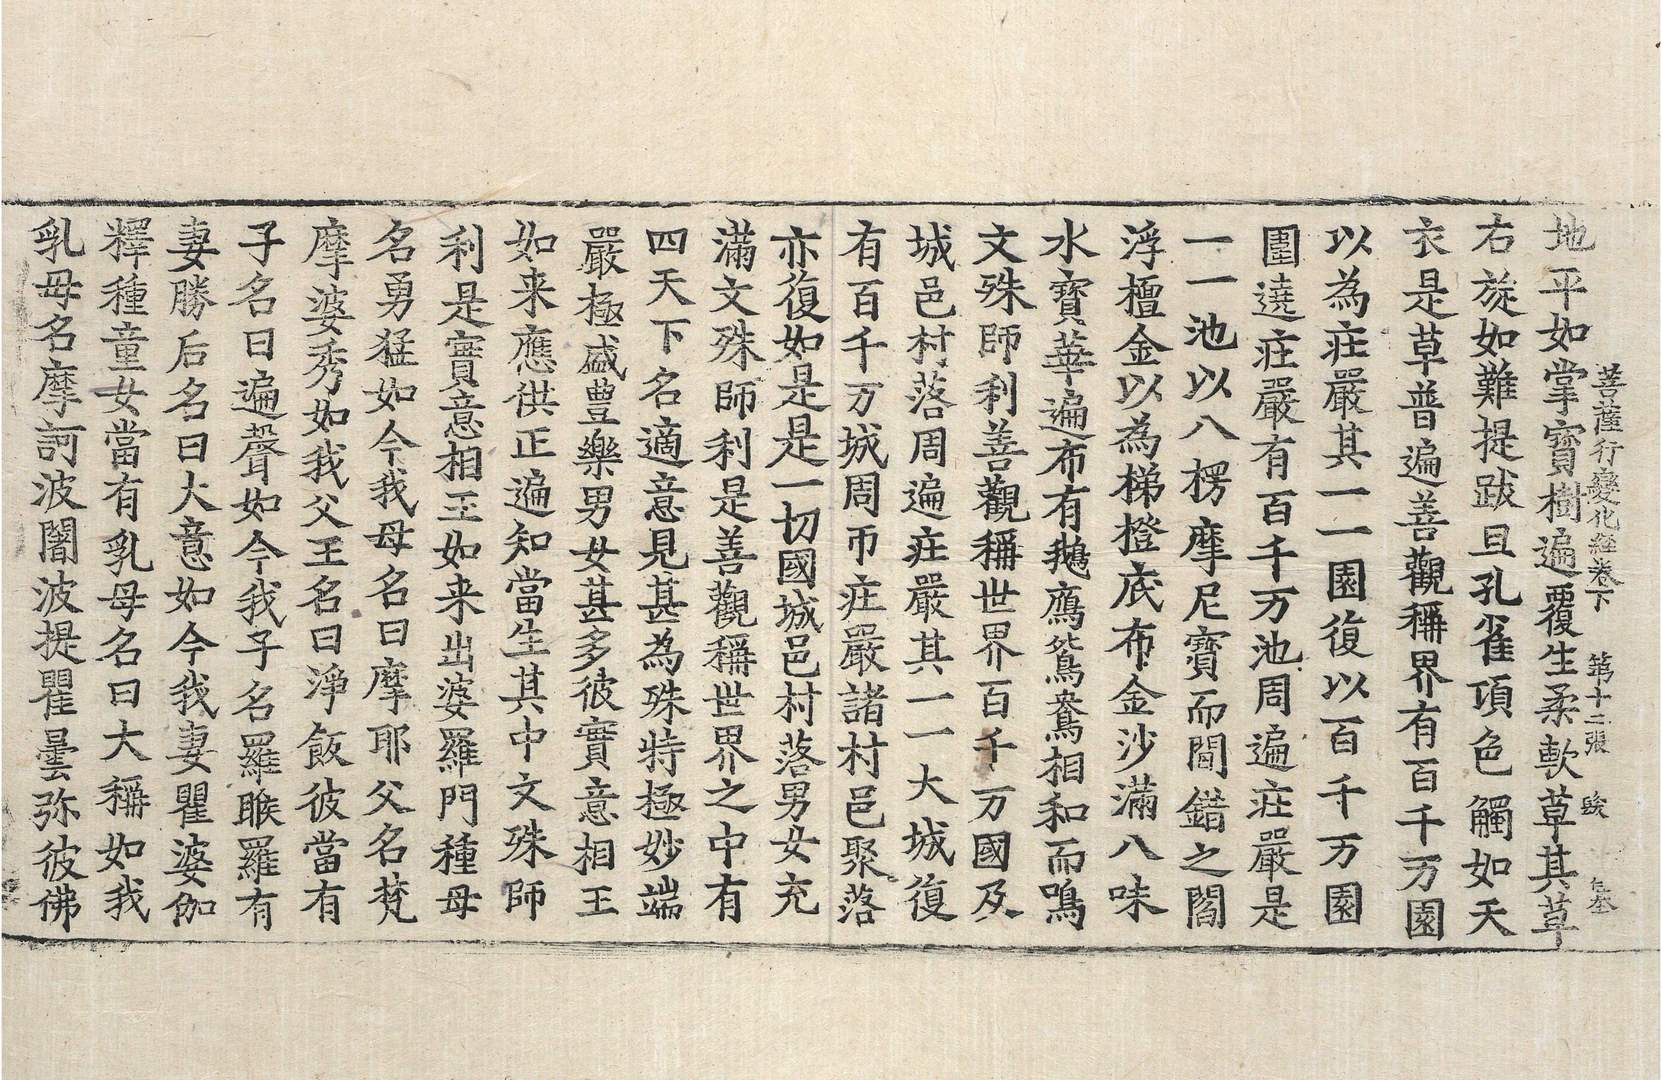 菩薩行變化經卷下 第十二張 駿
地平如掌寶樹遍覆生柔軟草其草
右旋如難提跋且孔雀項色觸如天
衣是草普遍善觀稱界有百千万園
以為莊嚴其一一園復以百千万園
圍遶莊嚴有百千万池周遍莊嚴是
一一池以八楞摩尼寶而間錯之閻
浮檀金以為梯橙底布金沙滿八味
水寶華遍布有鵝鴈鴛鴦相和而鳴
文殊師利善觀稱世界百千万國及
城邑村落周遍莊嚴其一一大城復
有百千万城周帀莊嚴諸村邑聚落
亦復如是是一切國城邑村落男女充
滿文殊師利是善觀稱世界之中有
四天下名適意見甚為殊特極妙端
嚴極盛豊樂男女甚多彼實意相王
如来應供正遍知當生其中文殊師
利是實意相王如来出婆羅門種母
名勇猛如今我母名曰摩耶父名梵
摩婆秀如我父王名曰淨飯彼當有
子名曰遍聲如今我子名羅睺羅有
妻勝后名曰大意如今我妻瞿婆伽
釋種童女當有乳母名曰大稱如我
乳母名摩訶波闍波提瞿曇弥彼佛